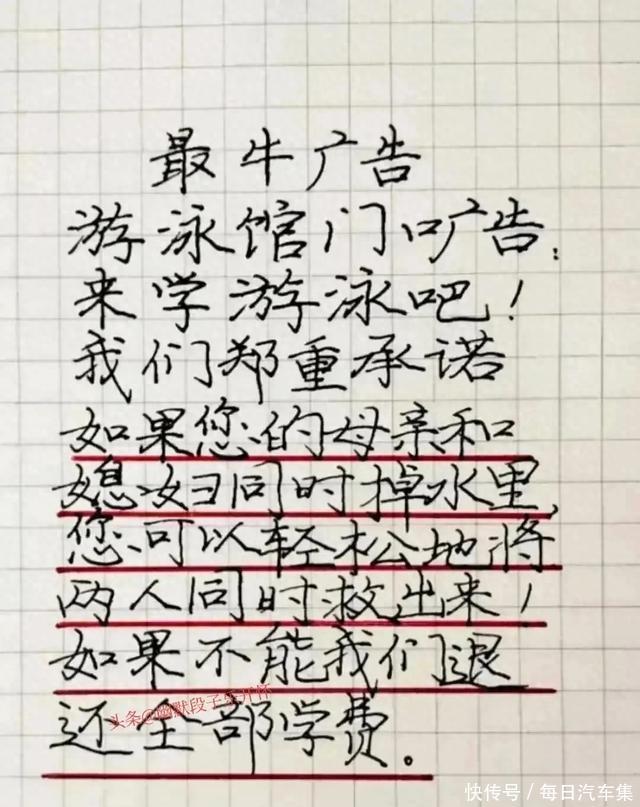 最牛广告
游泳馆门口广告:
来学游泳吧!
我们郑重承诺
如果您的母亲和
媳妇同时掉水里,
您可以轻松地将
两人同时救出来!
如果不能我们退
还全部学费。
头条@幽默段子乐开怀
快传号/每日汽车集